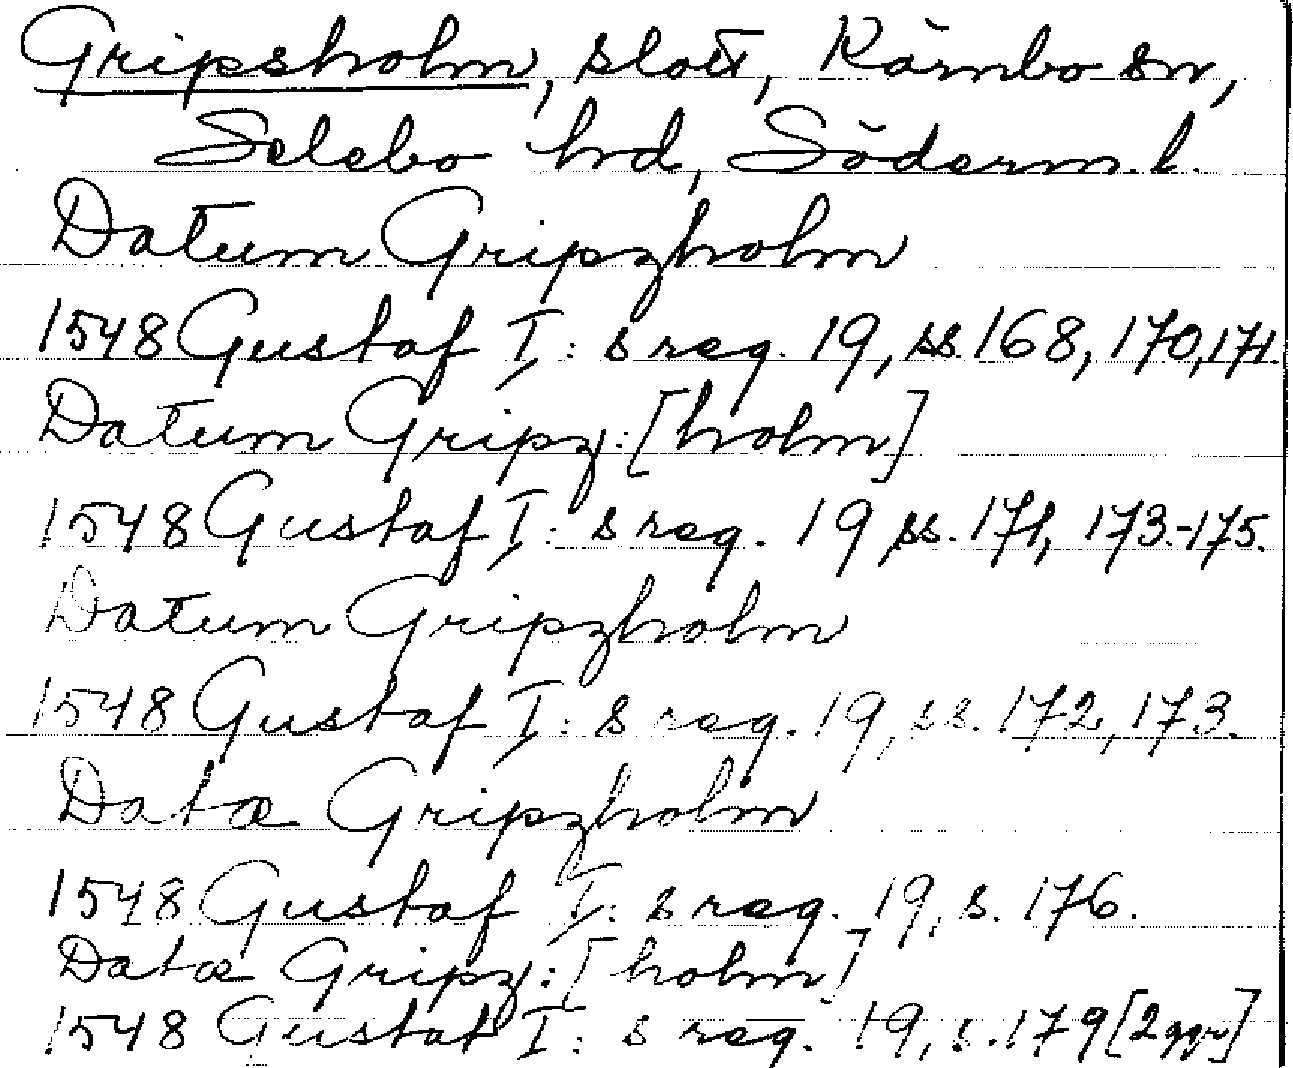 Gripsholm, slott, Kärnbo sn,
Selebo hd, Söderm. l.
Datum Gripzholm
1548 Gustaf I: s reg. 19, ss. 168, 170, 171.
Datum Gripz: [holm]
1548 Gustaf I: s reg. 19 ss. 171, 173.-175.
Datum Gripzholm
1548 Gustaf I: s reg. 19, ss. 172, 173.
Datæ Gripzholm
1548 Gustaf I: s reg. 19, s. 176.
Datæ Gripz: [holm]
1548 Gustaf I: s reg. 19, s. 179 [2 ggr]